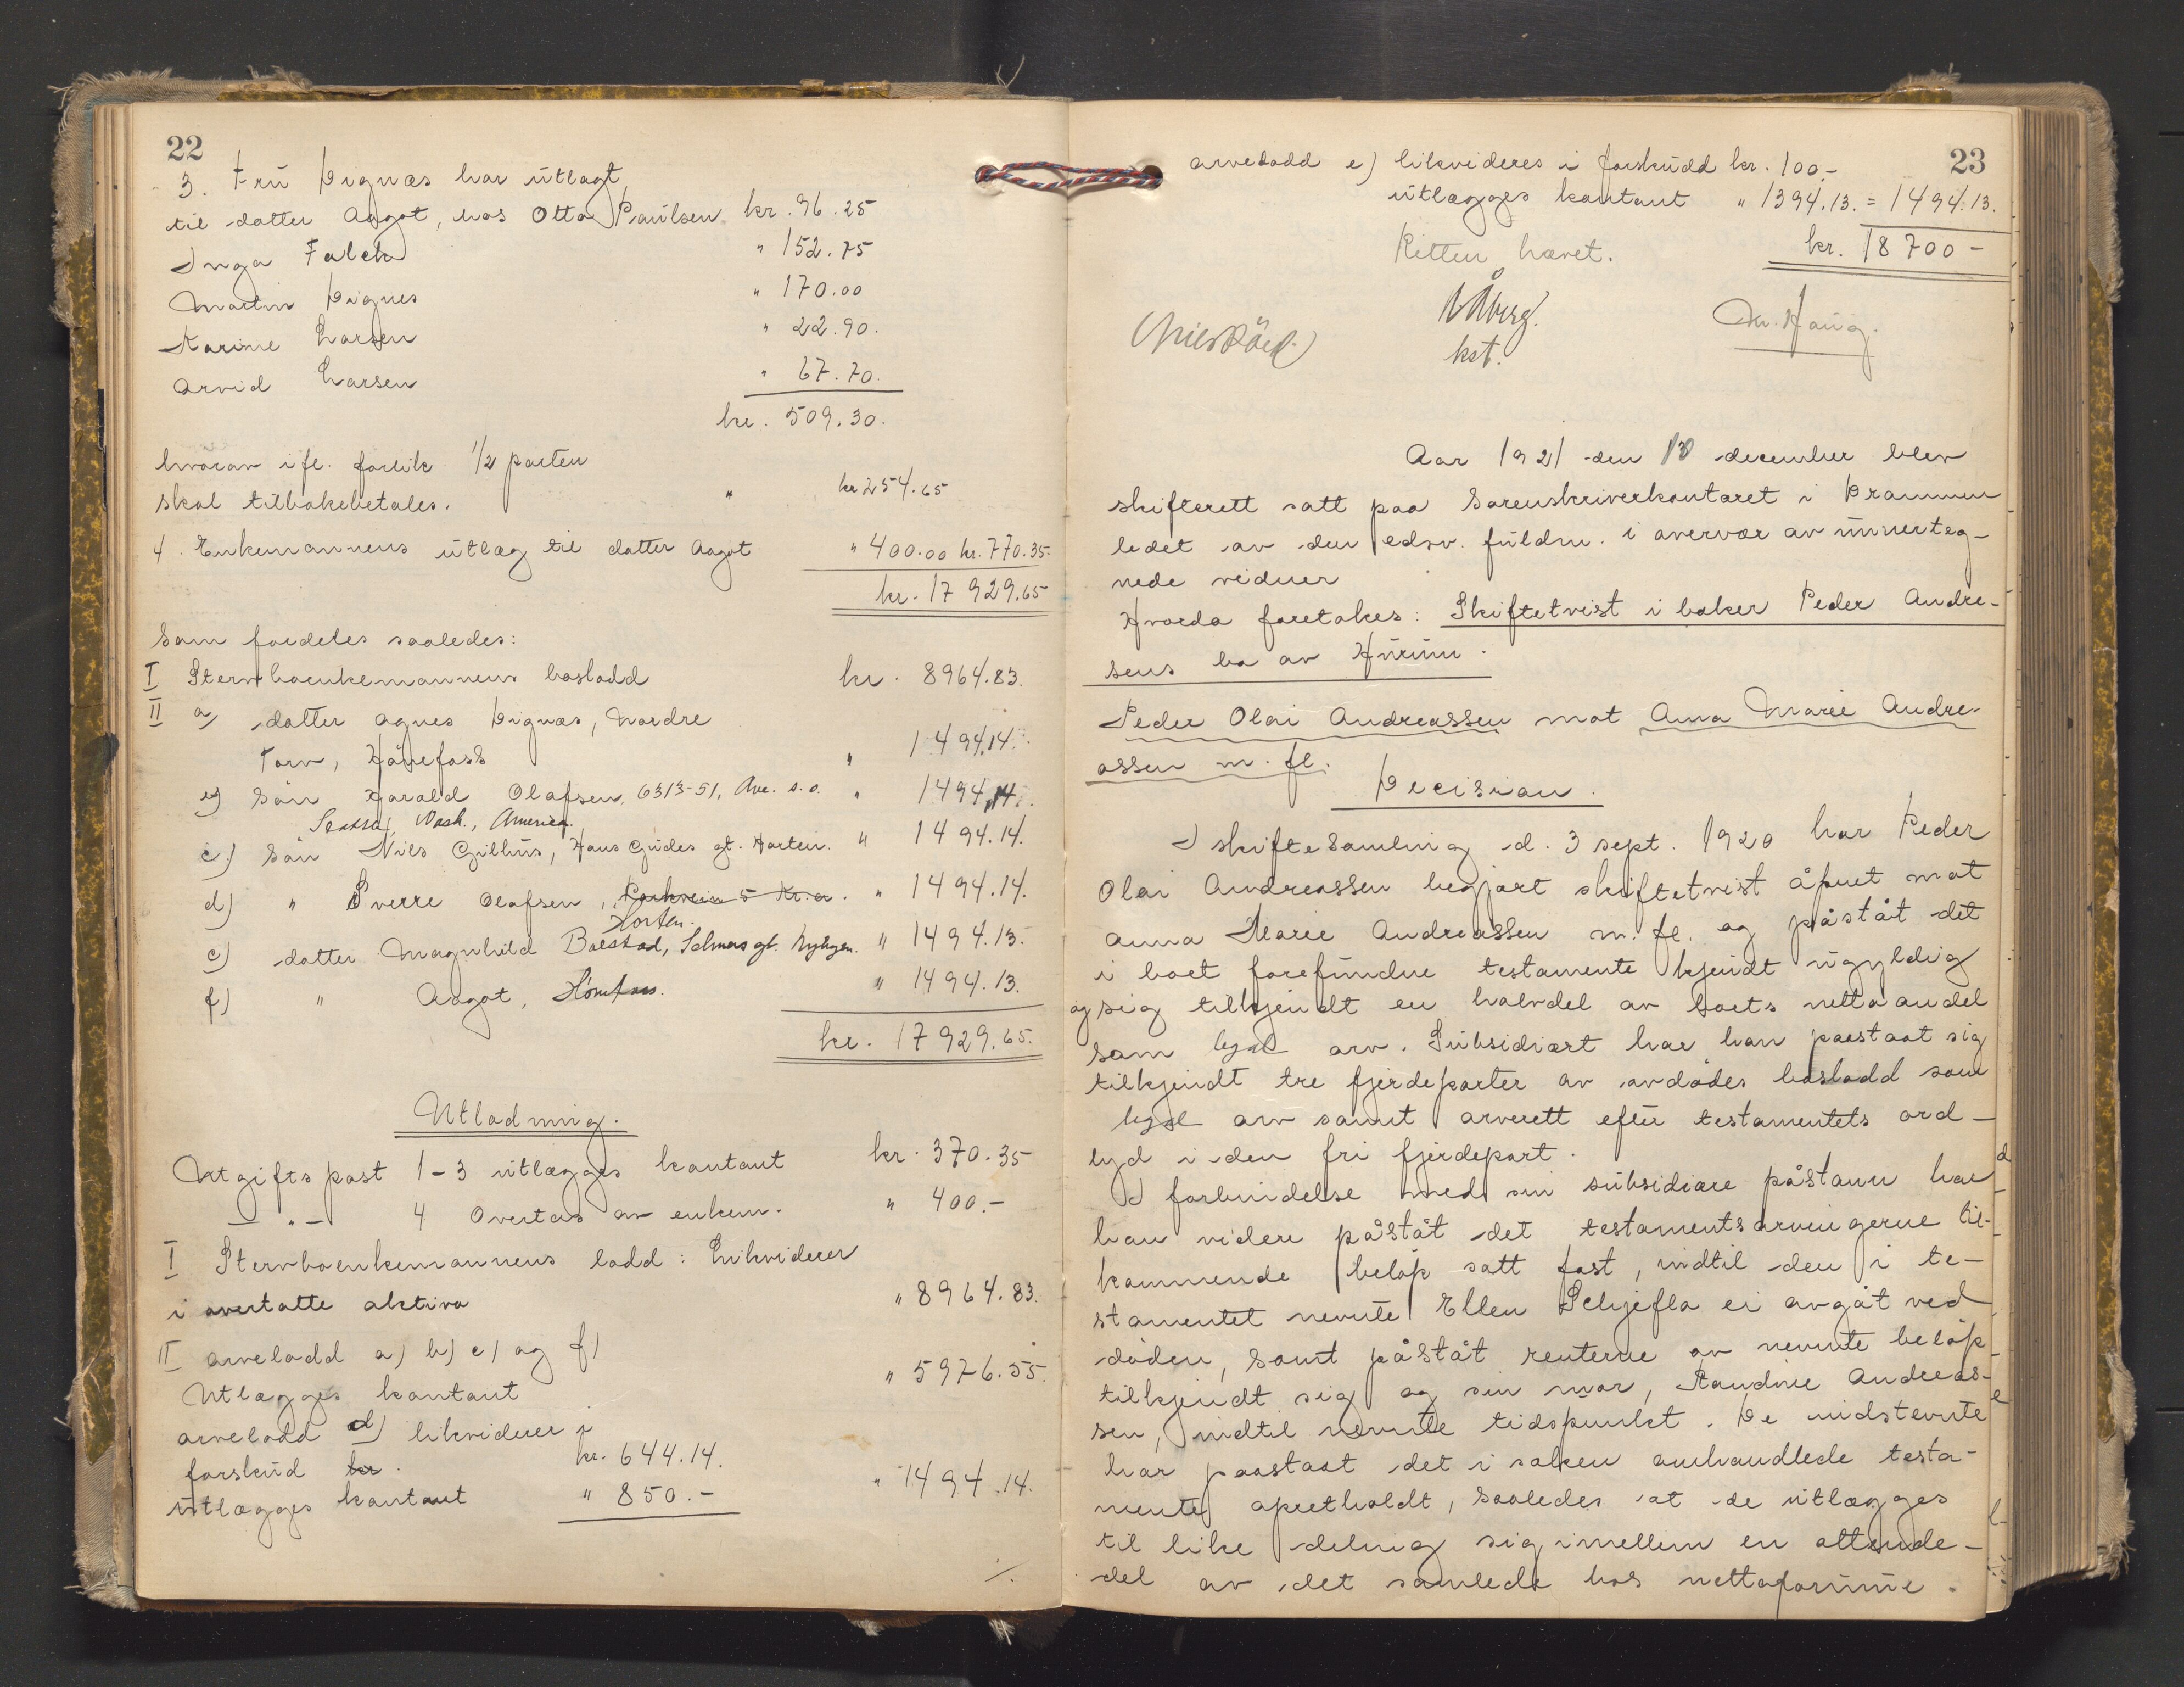 22
3. Fru Dignæs har utlagt
til datter Aagot, hos Otto Paulsen kr. 96.25
Inga Falck " 152.75
Martin Dignes " 170.00
Karine Larsen " 22.90.
Arvid Larsen " 67.70.
kr. 509.30.
hvorav ifl. forlik 1/2 parten
skal tilbakebetales. " kr 254.65
4. Enkemannens utlæg til datter Aagot " 400.00 kr. 770.35.
kr. 17 929.65
Som fordeles saaledes:
I Stervboenkemannens boslodd kr. 8964.83.
II a) datter Agnes Dignæs, Nordre
Torv, Hönefoss " 1494.14.
b) Sön Harald Olafsen, 6313-51, Ave. s.o. " 1494.14.
Wash., America.
c) Sön Nils Gilhus, Hans Gudes gt. Horten. " 1494.14.
d) " Sverre Olafsen, Kr.a. " 1494.14.
Horten.
e) datter Magnhild Bolstad, " 1494.13.
f) " Aagot, Hönefoss. " 1494.13.
kr. 17 929.65.
Utlodning.
Utgiftspost 1-3 utlægges kontant kr. 370.35
— " — 4 Overtas av enkem. " 400.-
I Stervboenkemannens lodd: Likviderer
i overtatte aktiva " 8964.83.
II arvelodd a) b) c) og f)
Utlægges kontant " 5976.55.
arvelodd d) likviderer i
forskud kr. kr. 644.14.
utlægges kontant " 850.- " 1494.14.
./.
23
arvelodd e) likvideres i forskudd kr. 100.-
utlægges kontant " 1394.13. = 1494.13.
kr. 18 700 -
Retten hævet.
Åberg.
kst.
Haug.
Aar 1921 den 10 december blev
skifterett satt paa Sorenskriverkontoret i Drammen
ledet av den edsv. fuldm. i overvær av underteg-
nede vidner
Hvorda foretokes: Skiftetvist i baker Peder Andre-
sens bo av Hurum.
Peder Olai Andreassen mot Anna Marie Andre-
assen m. fl.
Decision.
I skiftesamling d. 3 sept. 1920 har Peder
Olai Andreassen begjært skiftetvist åpnet mot
Anna Marie Andreassen m. fl. og påståt det
i boet forefundne testamente kjendt ugyldig
og sig tilkjendt en halvdel av boets netto andel
som legal arv. Subsidiært har han paastaat sig
tilkjendt tre fjerdeparter av avdødes boslodd som
legal arv samt arverett efter testamentets ord-
lyd i den fri fjerdepart.
I forbindelse med sin subsidiære påstann har
han videre påståt det testamentsarvingerne til-
kommende beløp satt fast, indtil den i te-
stamentet nevnte Ellen Schjefla er avgåt ved
døden, samt påståt renterne av nevnte beløp
tilkjendt sig og sin mor, Randine Andreas-
sen, indtil nevnte tidspunkt. De indstevnte
har paastaat det i saken omhandlede testa-
mente opretholdt, saaledes at de utlægges
til like deling sig imellem en ottende-
del av det samlede bos nettoformue.